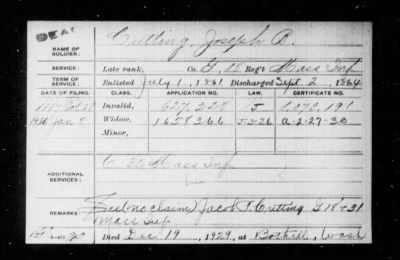 DEAD
NAME OF SOLDIER: Cutting, Joseph B.
SERVICE: Late rank, Co. G, 22 Reg't Mass Inf
TERM OF SERVICE: Enlisted July 1, 1861 Discharged Sept 2, 1864
DATE OF FILING. CLASS. APPLICATION NO. LAW. CERTIFICATE NO.
Oct 28 Invalid, 627.228 J 1.072.191
1930 Jan 8 Widow, 1658366 J-3-26 a-2-27-30
Minor,
ADDITIONAL SERVICES: C 32 Mass Inf
REMARKS: no claim) Jacob P. Cutting I 18 + 31
Mass Inf
Died Dec 19, 1929, at Bothell, Wash